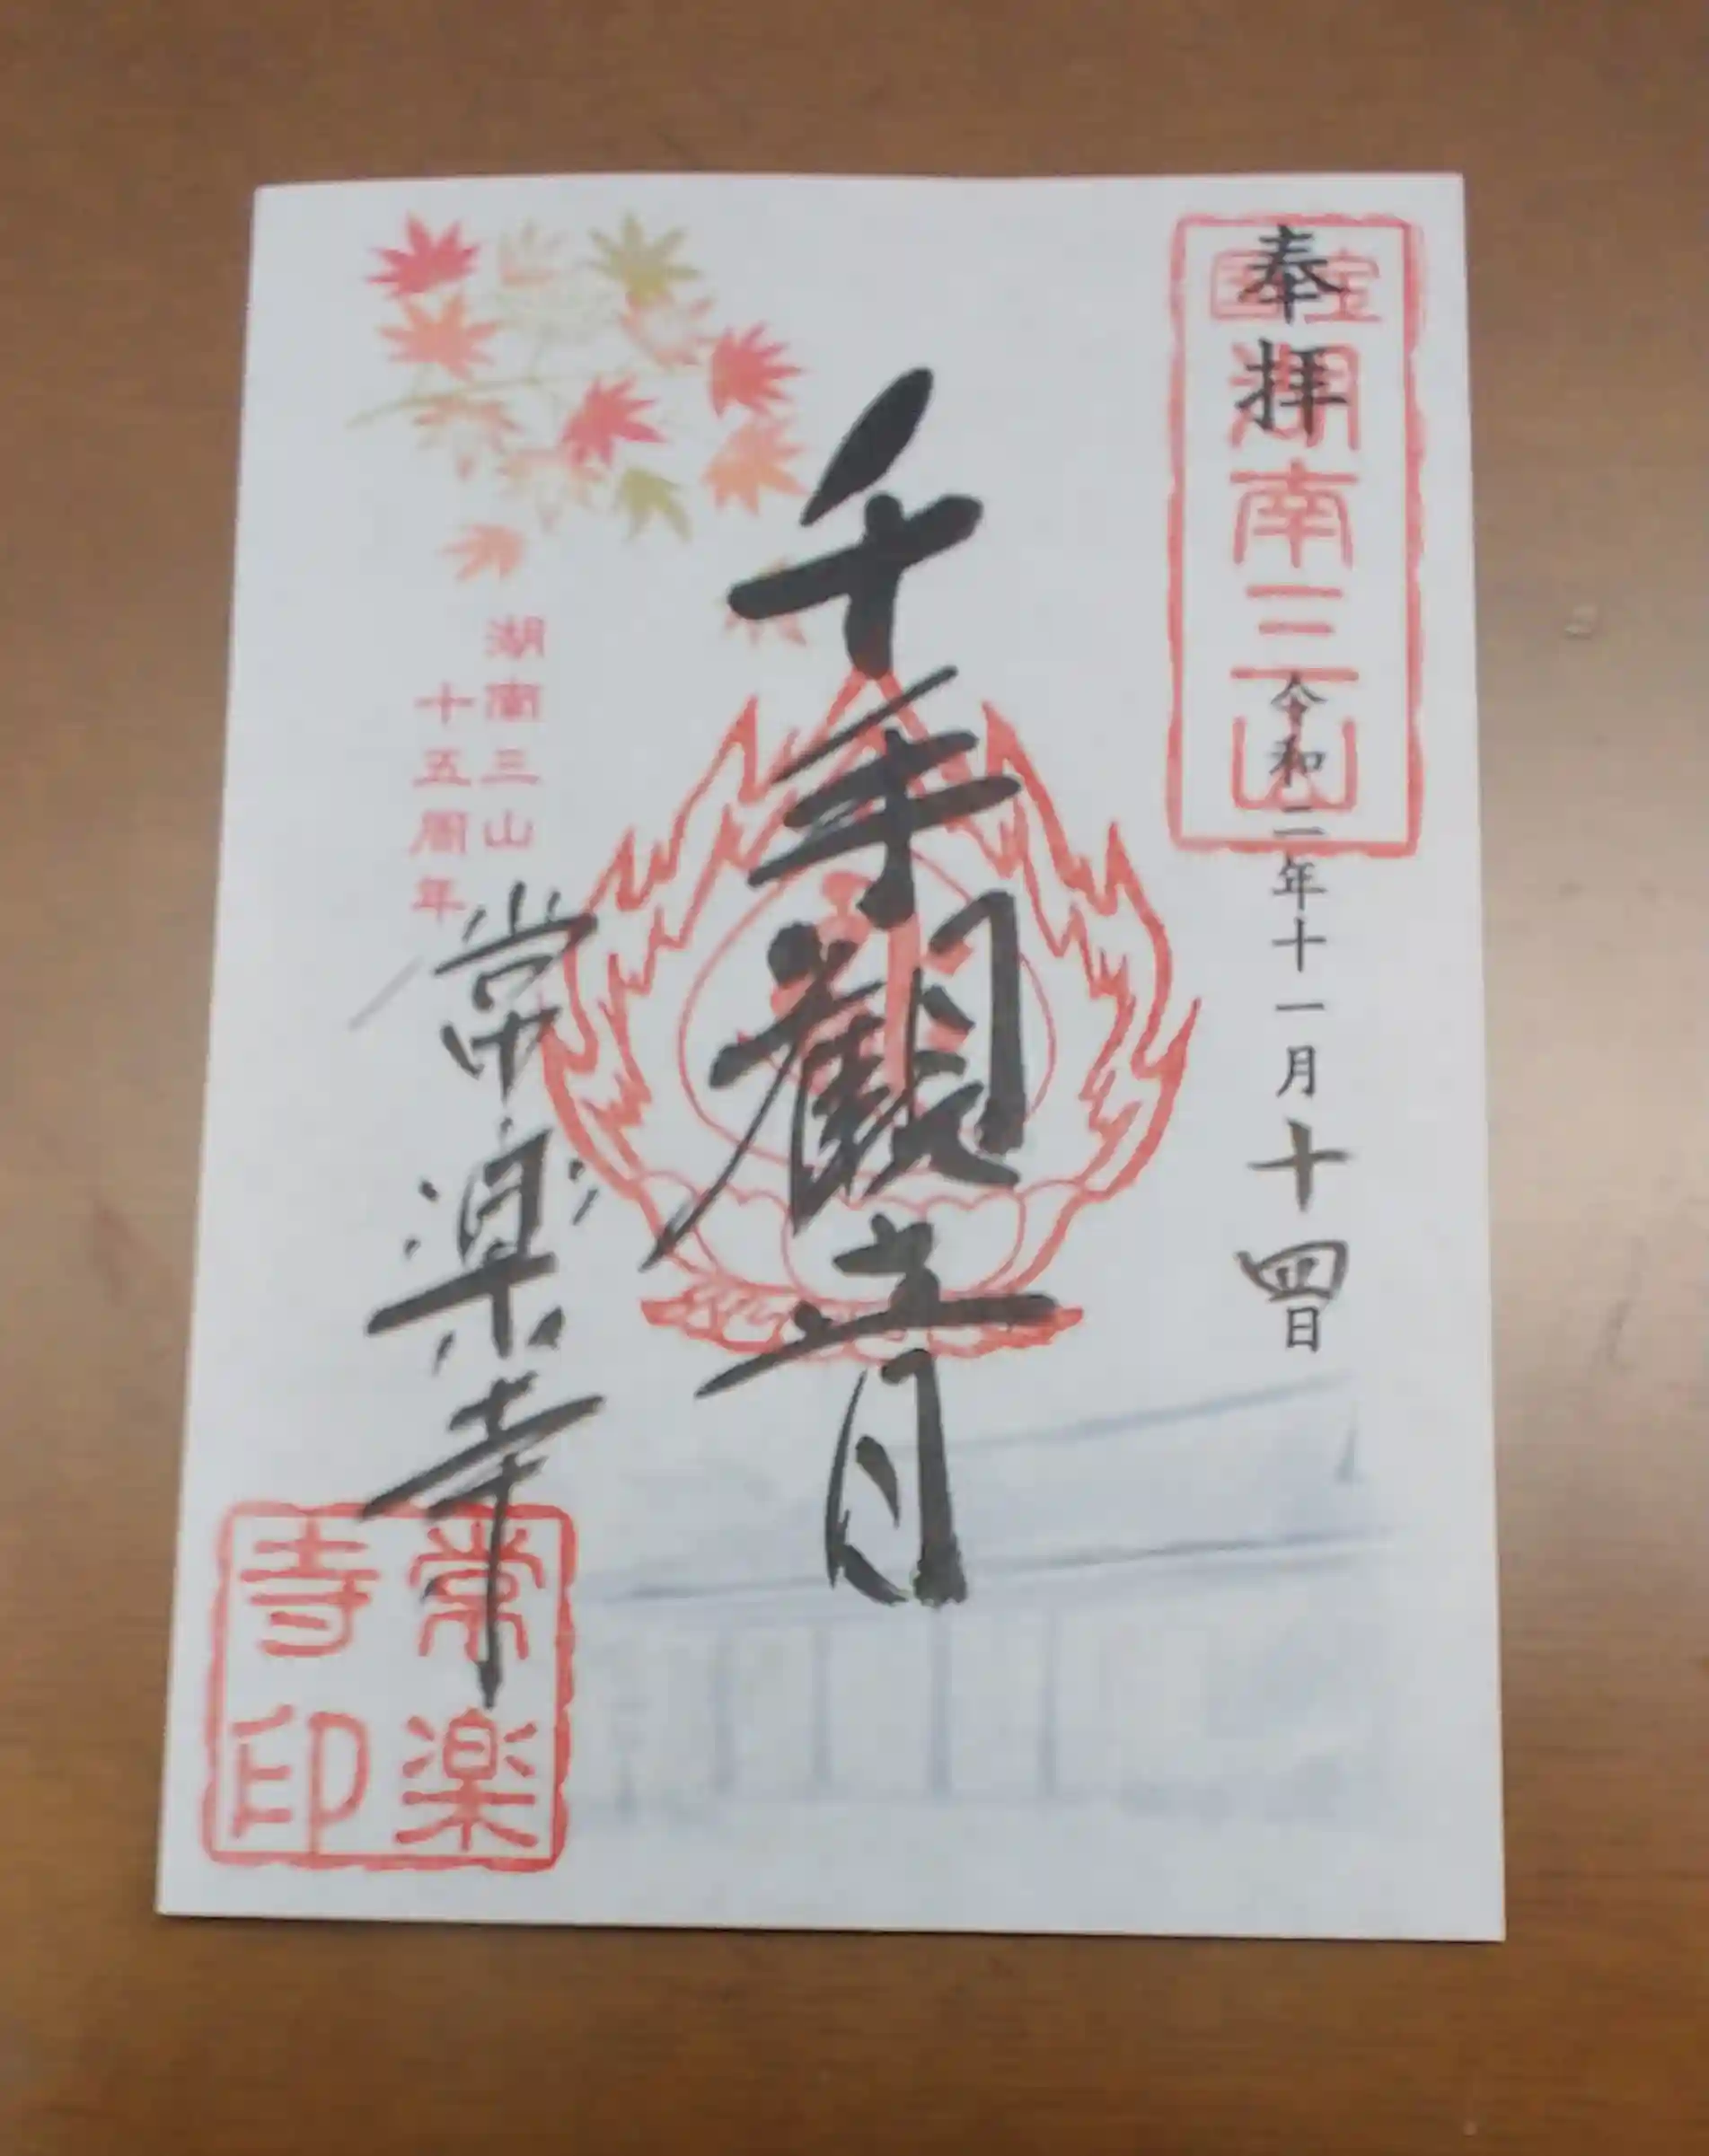 奉拝
国宝
湖南三山
令和二年十一月十四日
千手観音
湖南三山
十五周年
常楽寺
常楽寺印